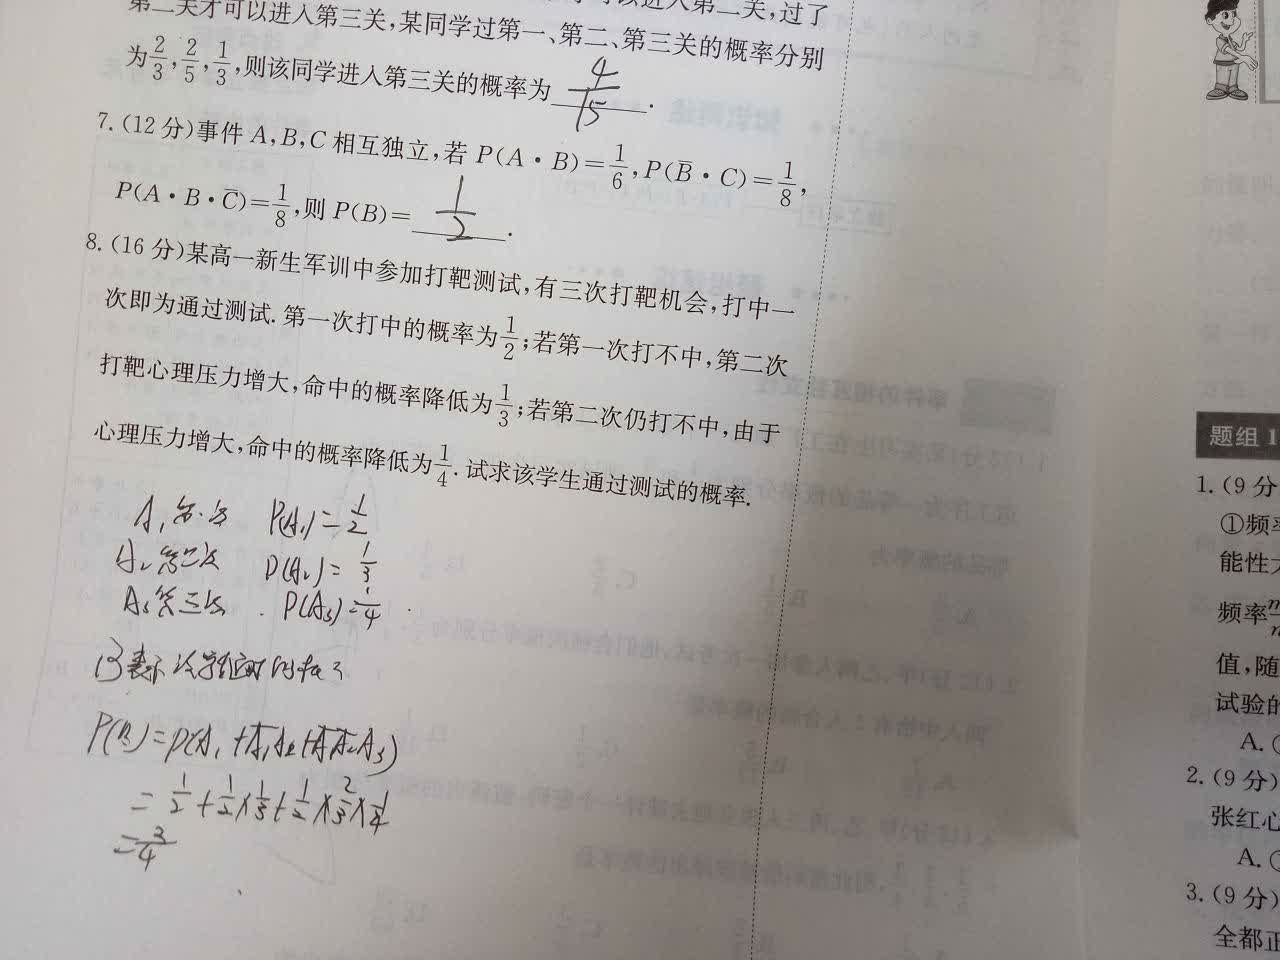 第二关才可以进入第三关,某同学过第一、第二、第三关的概率分别
为2/3,2/5,1/3,则该同学进入第三关的概率为 4/15 .
7. (12 分)事件 A,B,C 相互独立,若 P(A·B)=1/6,P(B̄·C)=1/8,
P(A·B·C̄)=1/8,则 P(B)= 1/2 .
8. (16 分)某高一新生军训中参加打靶测试,有三次打靶机会,打中一
次即为通过测试. 第一次打中的概率为1/2;若第一次打不中,第二次
打靶心理压力增大,命中的概率降低为1/3;若第二次仍打不中,由于
心理压力增大,命中的概率降低为1/4. 试求该学生通过测试的概率.
A₁ 第一次 P(A₁)=1/2
A₂ 第二次 P(A₂)=1/3
A₃ 第三次 . P(A₃)=1/4
P(B)=P(A₁+Ā₁A₂+Ā₁Ā₂A₃)
=1/2+1/2×1/3+1/2×2/3×1/4
=3/4
题组 1
1. (9 分
①频率
能性大
频率m/n
值,随
试验的
A. ①
2. (9 分)
张红心
A. ①
3. (9 分)
全都正